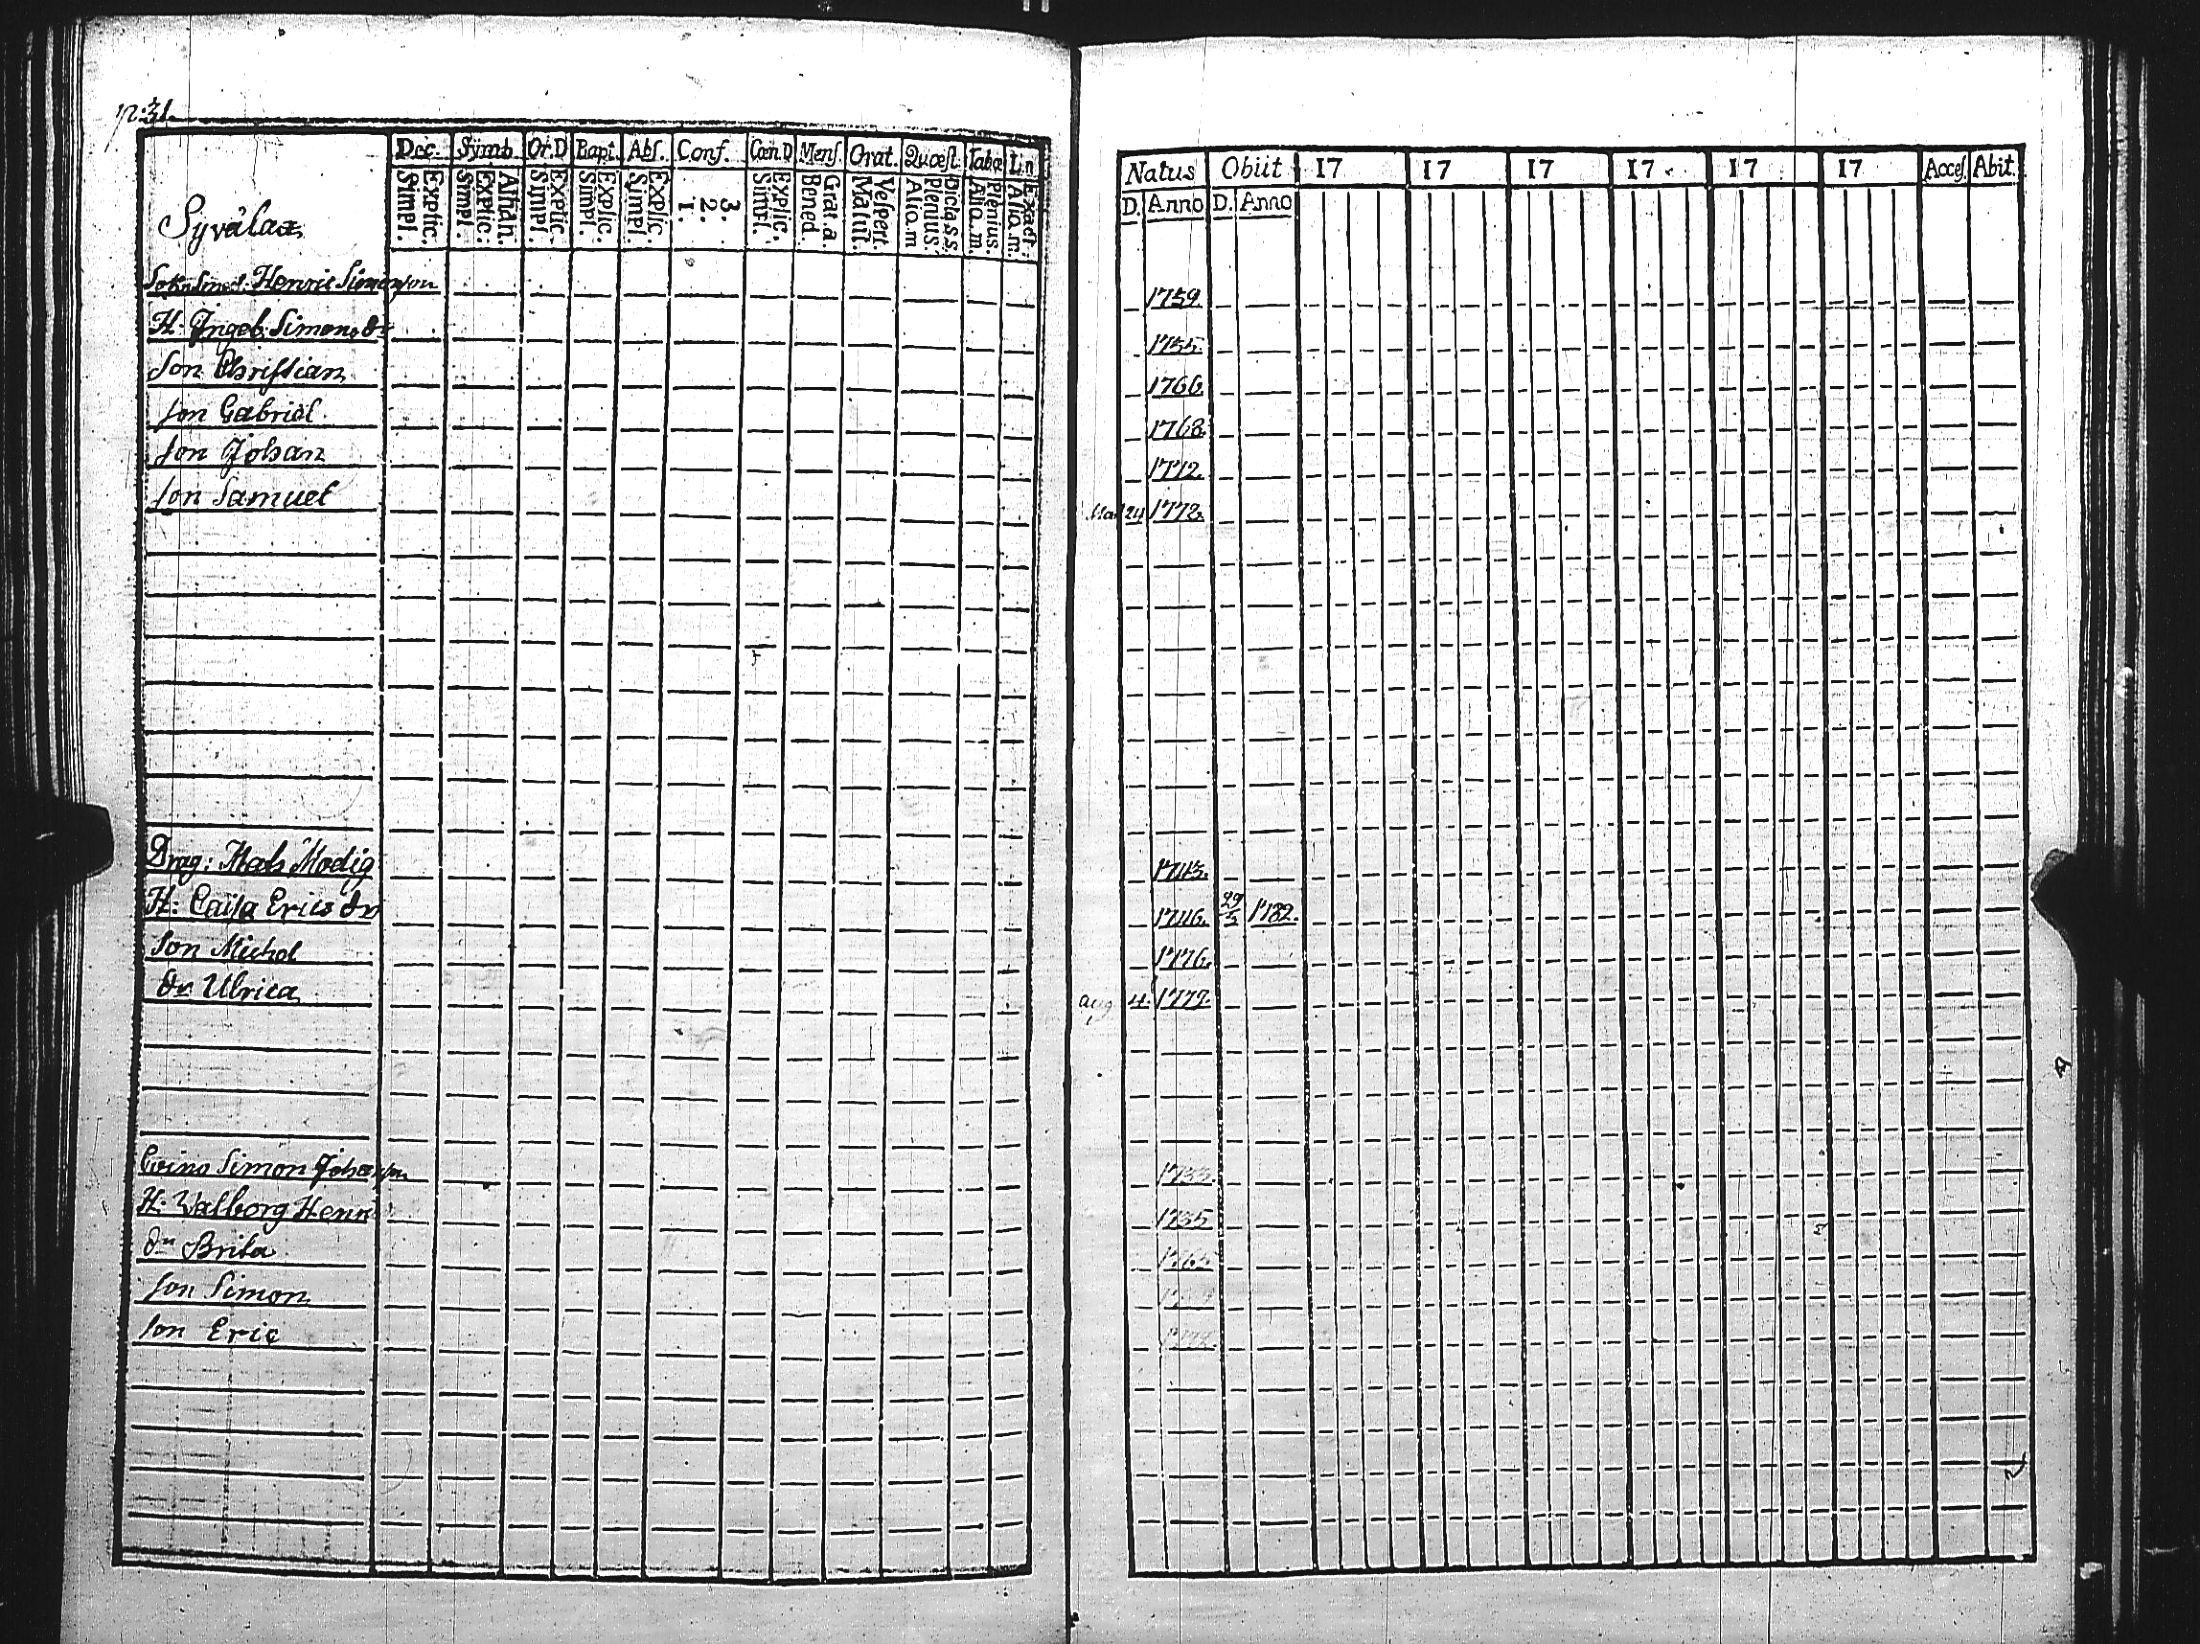 n:31.
Dec. Symb. Or.D Bapt. Abs. Conf. Cœn.D Mens. Orat. Quæst. Tabæ Lin
Explic. Simpl. Athan. Explic: Simpl. Explic. Simpl. Explic: Simpl. Explic. Simpl. 3. 2. 1. Explic. Simpl. Grat. a. Bened. Vespert. Matut. D:cla.s.s. Plenius. Alio.m Plenius. Alio.m. Exact. Alio.m.
Natus Obiit 17 17 17 17 17 17 Acces. Abit.
D. Anno D. Anno
Syvälax
Henric Simonson 1759.
H: Ingeb: Simons dr 1755.
Son Christian 1766.
Son Gabriel 1768.
Son Johan 1772.
Son Samuel 24 1778.
Drag: Mats Modig 1745.
H: Caisa Erics dr 1746. 29/5 1782.
Son Michel 1776.
dr Ulrica Aug 4. 1777.
Simon Johansson 1733.
H: Valborg Henr 1735
dr Brita 1763
Son Simon
Son Eric